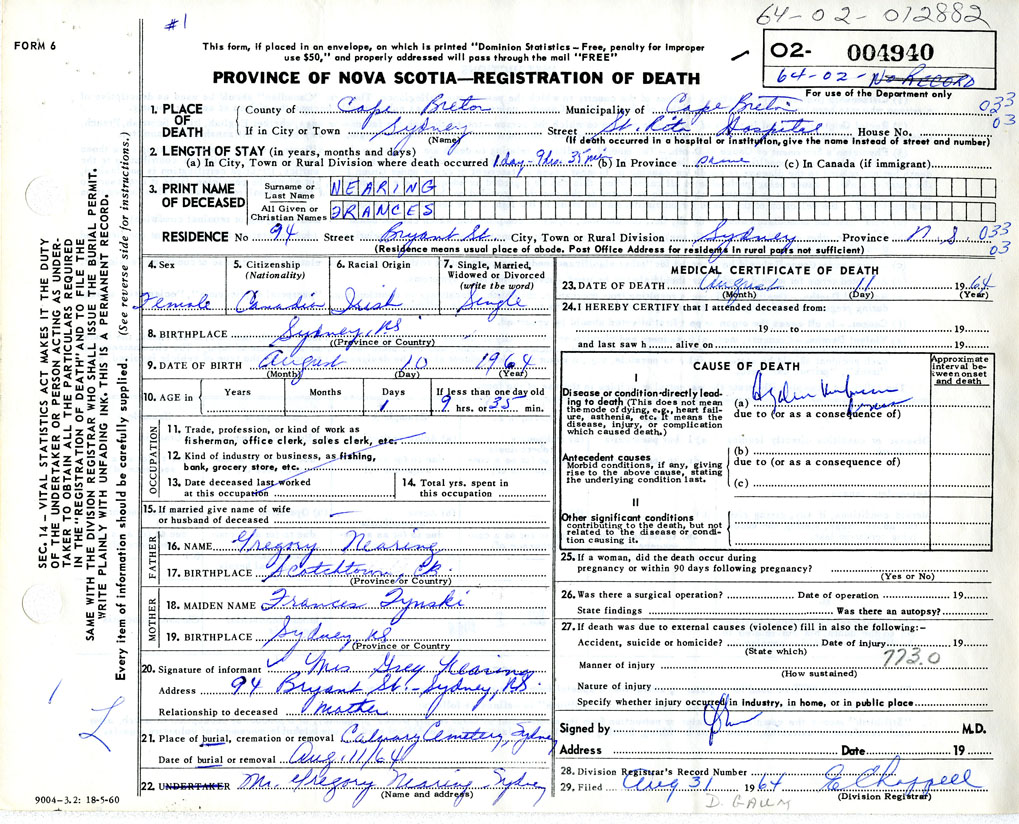 #1
64-02-012882
FORM 6
This form, if placed in an envelope, on which is printed "Dominion Statistics – Free, penalty for improper
use $50," and properly addressed will pass through the mail "FREE"
02- 004940
64-02- No RECORD
For use of the Department only
PROVINCE OF NOVA SCOTIA—REGISTRATION OF DEATH
033
03
1. PLACE OF DEATH
County of Cape Breton Municipality of Cape Breton
If in City or Town Sydney Street St. Rita Hospital House No.
(Name) (If death occurred in a hospital or institution, give the name instead of street and number)
2. LENGTH OF STAY (in years, months and days)
(a) In City, Town or Rural Division where death occurred 1 day - 9 hrs. 35 min (b) In Province same (c) In Canada (if immigrant)
3. PRINT NAME OF DECEASED
Surname or Last Name NEARING
All Given or Christian Names FRANCES
RESIDENCE No 94 Street Bryant St. City, Town or Rural Division Sydney Province N S
033
03
(Residence means usual place of abode. Post Office Address for residents in rural parts not sufficient)
4. Sex Female
5. Citizenship (Nationality) Canadian
6. Racial Origin Irish
7. Single, Married, Widowed or Divorced (write the word) Single
8. BIRTHPLACE Sydney, NS
(Province or Country)
9. DATE OF BIRTH August 10 1964
(Month) (Day) (Year)
10. AGE in Years Months Days 1 If less than one day old 9 hrs. or 35 min.
OCCUPATION
11. Trade, profession, or kind of work as
fisherman, office clerk, sales clerk, etc.
12. Kind of industry or business, as fishing,
bank, grocery store, etc.
13. Date deceased last worked
at this occupation
14. Total yrs. spent in
this occupation
15. If married give name of wife
or husband of deceased –
FATHER
16. NAME Gregory Nearing
17. BIRTHPLACE Scotchtown, CB.
(Province or Country)
MOTHER
18. MAIDEN NAME Frances Tynski
19. BIRTHPLACE Sydney NS
(Province or Country)
20. Signature of informant Mrs Greg Nearing
Address 94 Bryant St. - Sydney, NS
Relationship to deceased Mother
21. Place of burial, cremation or removal Calvary Cemetery, Sydney
Date of burial or removal Aug. 11/64
22. UNDERTAKER Mr. Gregory Nearing Sydney
(Name and address)
9004–3.2: 18-5-60
MEDICAL CERTIFICATE OF DEATH
23. DATE OF DEATH August 11 1964
(Month) (Day) (Year)
24. I HEREBY CERTIFY that I attended deceased from:
19 to 19
and last saw h alive on 19
CAUSE OF DEATH
Approximate interval between onset and death
I
Disease or condition directly leading to death (This does not mean the mode of dying, e.g., heart failure, asthenia, etc. It means the disease, injury, or complication which caused death.)
(a) Hyaline Membrane
due to (or as a consequence of)
Antecedent causes
Morbid conditions, if any, giving rise to the above cause, stating the underlying condition last.
(b)
due to (or as a consequence of)
(c)
II
Other significant conditions
contributing to the death, but not related to the disease or condition causing it.
25. If a woman, did the death occur during
pregnancy or within 90 days following pregnancy?
(Yes or No)
26. Was there a surgical operation? Date of operation 19
State findings Was there an autopsy?
27. If death was due to external causes (violence) fill in also the following:–
Accident, suicide or homicide? Date of injury 19
(State which)
773.0
Manner of injury
(How sustained)
Nature of injury
Specify whether injury occurred in industry, in home, or in public place
Signed by M.D.
Address Date 19
28. Division Registrar's Record Number
29. Filed Aug 31 1964 E Chappell
(Division Registrar)
D. GAUM
SEC. 14 – VITAL STATISTICS ACT MAKES IT THE DUTY
OF THE UNDERTAKER OR PERSON ACTING AS UNDER-
TAKER TO OBTAIN ALL THE PARTICULARS REQUIRED
IN THE "REGISTRATION OF DEATH" AND TO FILE THE
SAME WITH THE DIVISION REGISTRAR WHO SHALL ISSUE THE BURIAL PERMIT.
WRITE PLAINLY WITH UNFADING INK. THIS IS A PERMANENT RECORD.
Every item of information should be carefully supplied. (See reverse side for instructions.)